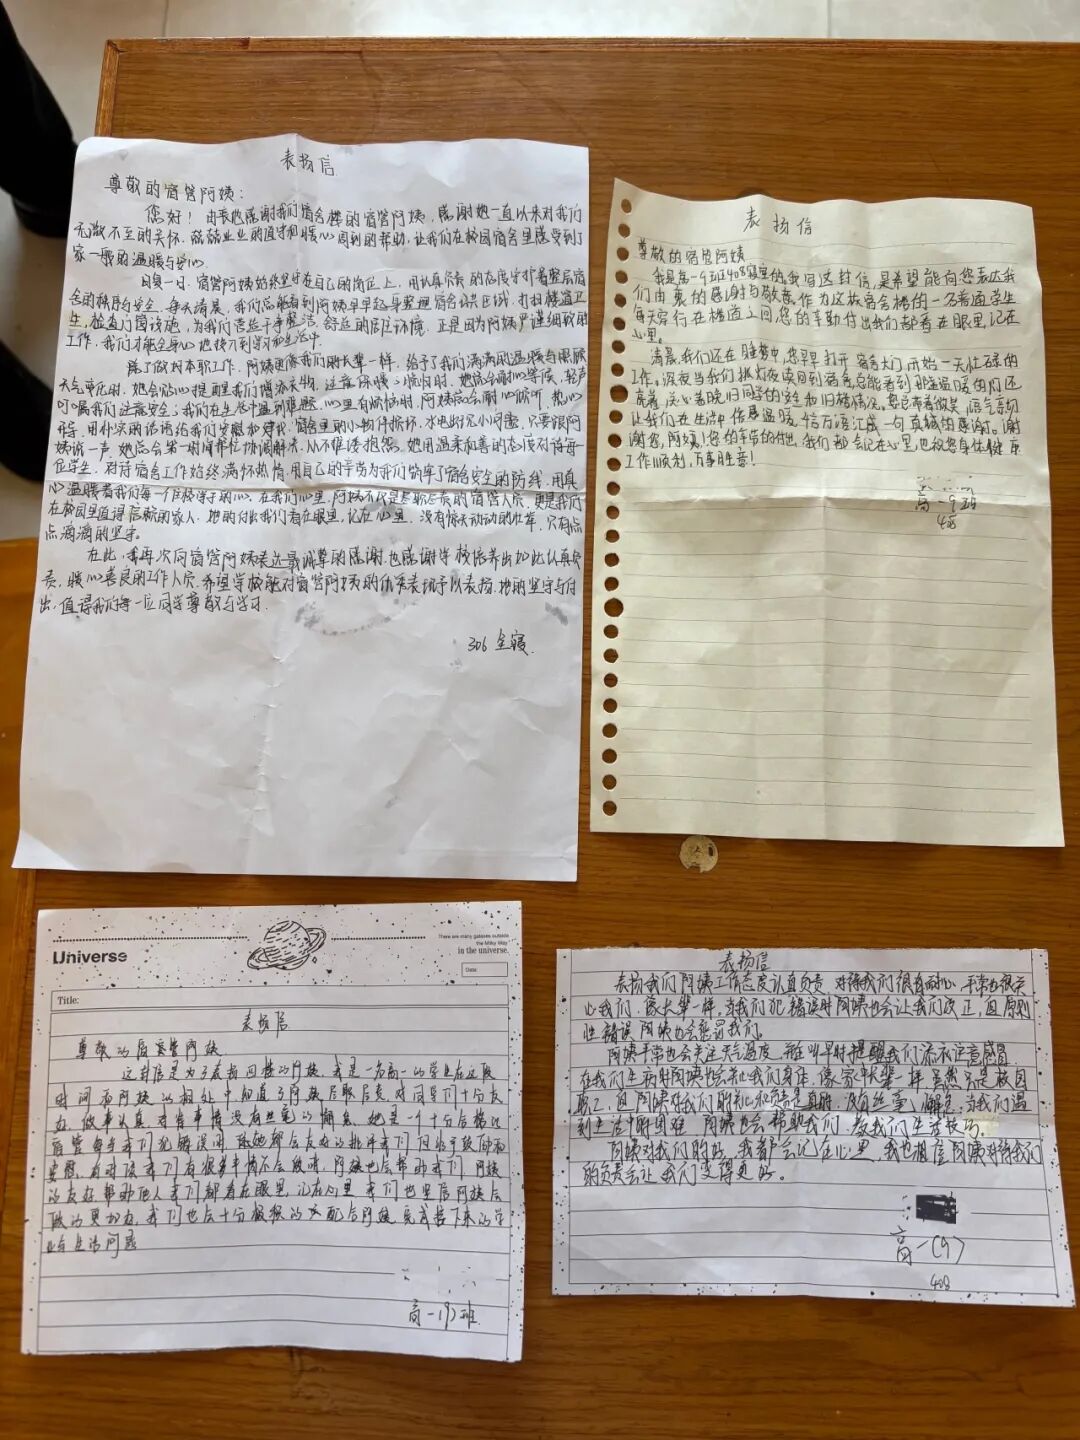 表扬信
尊敬的宿管阿姨：
您好！由衷地感谢我们宿舍楼的宿管阿姨，感谢她一直以来对我们
无微不至的关怀、兢兢业业的值守和暖心周到的帮助，让我们在校园宿舍里感受到了
家一般的温暖与安心。
日复一日，宿管阿姨始终坚守在自己的岗位上，用认真负责的态度守护着整层宿
舍的秩序与安全，每天清晨，我们总能看到阿姨早早起身整理宿舍公共区域，打扫楼道卫
生，检查门窗设施，为我们营造干净整洁、舒适的居住环境。正是因为阿姨严谨细致的
工作，我们才能全身心地投入到学习和生活中。
除了做好本职工作，阿姨更像我们的长辈一样，给予了我们满满的温暖与照顾
天气变化时，她会贴心提醒我们增添衣物，注意保暖；晚归时，她总会耐心等候，轻声
叮嘱我们注意安全；我们在生活中遇到难题、心里有烦恼时，阿姨总会耐心倾听，热心
开导，用朴实的话语给我们安慰和建议。宿舍里的小物件损坏、水电出现小问题，只要跟阿
姨说一声，她总会第一时间帮忙协调解决，从不推诿抱怨。她用温柔和善的态度对待每一
位学生，对待宿舍工作始终满怀热情，用自己的辛劳为我们筑牢了宿舍安全的防线，用真
心温暖着我们每一个住校学子的心。在我们心里，阿姨不仅是尽职尽责的宿管人员，更是我们
在校园里值得信赖的家人，她的付出我们看在眼里，记在心里，没有惊天动地的壮举，只有点
点滴滴的坚守。
在此，我再次向宿管阿姨表达最诚挚的感谢，也感谢学校培养出如此认真负
责，暖心善良的工作人员，希望学校能对宿管阿姨的优秀表现予以表扬，她的坚守与付
出，值得我们每一位同学尊敬与学习.
306 全寝.
表扬信
尊敬的宿管阿姨
我是高一9班408寝室的我写这封信，是希望能向您表达我
们由衷的感谢与敬意作为这栋宿舍楼的一名普通学生
每天穿行在楼道之间您的辛勤付出我们都看在眼里，记在
心里。
清晨，我们还在睡梦中，您早早打开宿舍大门，开始一天忙碌的
工作。深夜当我们挑灯夜读回到宿舍，总能看到那盏温暖的灯还
亮着，关心着晚归同学的安全和归寝情况。您总带着微笑，语气亲切
让我们在生活中倍感温暖，千言万语汇成一句真诚的感谢。谢
谢您，阿姨！您的辛劳的付出，我们都会记在心里，也祝您身体健康
工作顺利，万事胜意！
高一9班
408
Universe
There are many galaxies outside
the Milky Way
in the universe.
Date:
Title:
表扬信
尊敬的宿管阿姨
这封信是为了表扬四楼的阿姨，我是一名高一的学生在这段
时间和阿姨的相处中知道了阿姨尽职尽责，对同学们十分友
办，做事认真，对待事情没有丝毫的懈怠，她是一个十分合格的
宿管每当我们犯错误时，
安慰，有时候我们有很多事情不会做时，阿姨也会帮助我们，阿姨
的友好，帮助他人我们都看在眼里，记在心里，我们也坚信阿姨会
做的更加好，我们也会十分积极的配合阿姨，完成接下来的学
业与生活问题
高一(9)班
表扬信
表扬我们阿姨工作态度认真负责，对待我们很有耐心，平常也很关
心我们，像长辈一样，当我们犯错误时阿姨也会让我们改正，且原则
性错误阿姨也会惩罚我们。
阿姨平常也会关注天气温度，每当叫早时提醒我们添衣注意感冒
在我们生病时阿姨也会关心我们身体，像家中长辈一样，虽然只是校园
职工，但阿姨对我们的关心和负责是真的，没有丝毫懈怠，当我们遇
到生活中的困难，阿姨也会帮助我们，教我们生活技巧。
阿姨对我们的好，我都会记在心里，我也相信阿姨对待我们
的负责会让我们变得更好。
高一(9)
408